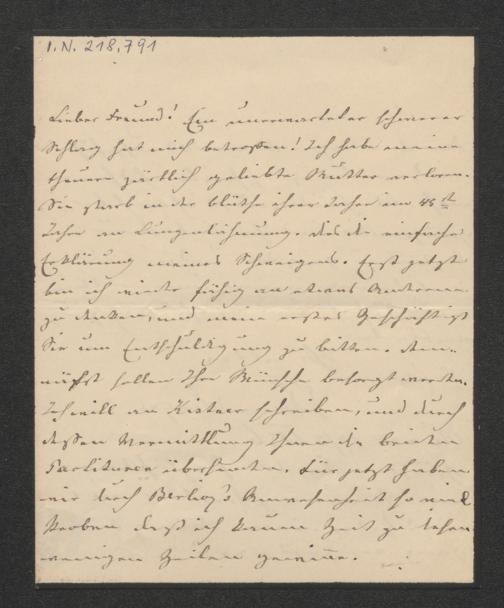 I.N. 218.791
Lieber Freund! Ein unerwarteter schwerer
Schlag hat mich betroffen! Ich habe meine
theuere zärtlich geliebte Mutter verloren.
Sie starb in der Blüthe ihrer Jahre im 45st
Jahre an Lungenlähmung. Dies die einfache
Erklärung meines Schweigens. Erst jetzt
bin ich wieder fähig an etwas Anderes
zu denken, und mein erstes Geschäft ist
Sie um Entschuldigung zu bitten. Dem-
nächst sollen Ihre Wünsche besorgt werden.
Ich will an Kistner schreiben, und durch
dessen Vermittlung Ihnen die beiden
Partituren übersenden. Für jetzt haben
wir durch Berlioz's Anwesenheit so viel
Proben daß ich kaum Zeit zu diesen
wenigen Zeilen gewinne.